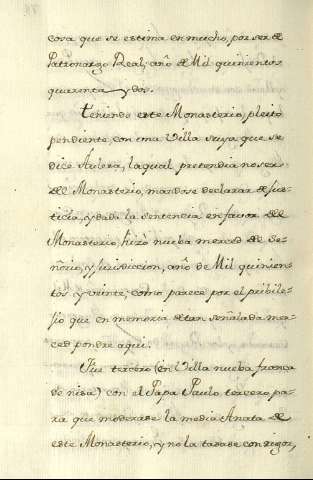 cosa que se estima en mucho, por ser de
Patronazgo Real, año de Mil quinientos
quarenta y dos.
Teniendo este Monasterio, pleito
pendiente, con una Villa suya que se
dice Aulera, la qual pretendia no ser
del Monasterio, mandose declarar de jus-
ticia, y dada la sentencia en favor del
Monasterio, hizo nueba merced de Se-
ñorio, y Jurisdiccion, año de Mil quinien-
tos y veinte, como parece por el pribile-
jio que en memoria de tan señalada mer-
ced pondre aqui.
Fue tercero (en Villa nueba franca
de nisa) con el Papa Paulo tercero, pa-
ra que moderase la media Anata de
este Monasterio, y no la tasase con rigor,